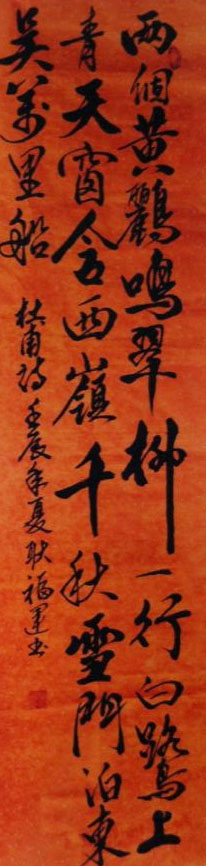 两個黄鸝鳴翠柳一行白鷺上
青天窗含西嶺千秋雪門泊東
吴萬里船
杜甫詩壬辰年夏耿福運书